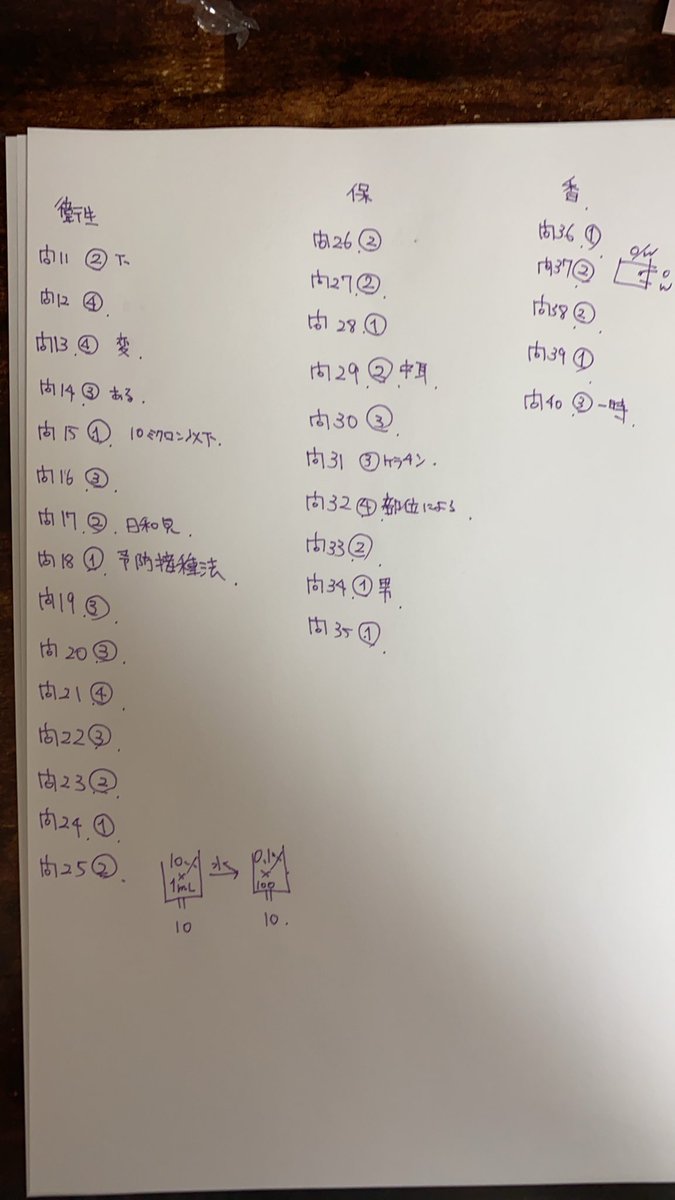 衛生
問11 ② 下
問12 ④.
問13 ④ 変.
問14 ③ ある.
問15 ① 10ミクロン以下.
問16 ③.
問17 ② 日和見.
問18 ① 予防接種法.
問19 ③.
問20 ③.
問21 ④.
問22 ③.
問23 ②.
問24 ①.
問25 ②.
10%
×
1mL
10
水
0.1%
×
100
10.
保
問26 ②
問27 ②.
問28 ①
問29 ② 中耳
問30 ③.
問31 ③ ケラチン.
問32 ④ 部位による.
問33 ②
問34 ① 男.
問35 ①.
香.
問36 ①
問37 ②
O/W
O
W
問38 ②
問39 ①.
問40 ③ 一時.